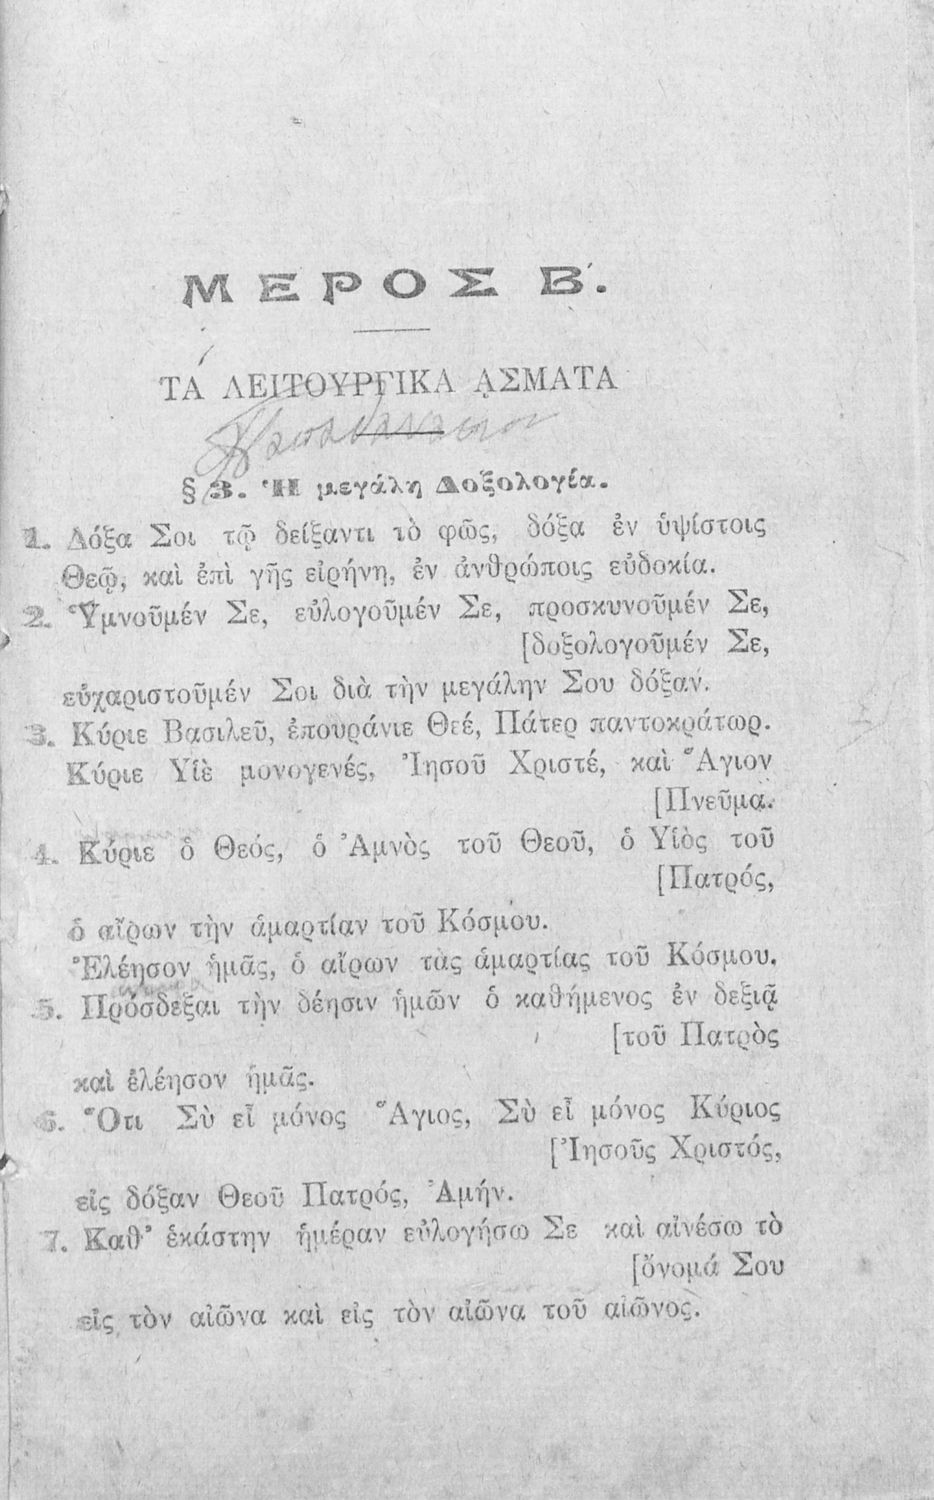 ΜΕΡΟΣ Β΄.
ΤΑ ΛΕΙΤΟΥΡΓΙΚΑ ᾼΣΜΑΤΑ
§ 3. Ἡ μεγάλη Δοξολογία.
1. Δόξα Σοι τῷ δείξαντι τὸ φῶς, δόξα ἐν ὑψίστοις
Θεῷ, καὶ ἐπὶ γῆς εἰρήνη, ἐν ἀνθρώποις εὐδοκία.
2. Ὑμνοῦμέν Σε, εὐλογοῦμέν Σε, προσκυνοῦμέν Σε,
[δοξολογοῦμέν Σε,
εὐχαριστοῦμέν Σοι διὰ τὴν μεγάλην Σου δόξαν.
3. Κύριε Βασιλεῦ, ἐπουράνιε Θεέ, Πάτερ παντοκράτωρ.
Κύριε Υἱὲ μονογενές, Ἰησοῦ Χριστέ, καὶ Ἅγιον
[Πνεῦμα.
4. Κύριε ὁ Θεός, ὁ Ἀμνὸς τοῦ Θεοῦ, ὁ Υἱὸς τοῦ
[Πατρός,
ὁ αἴρων τὴν ἁμαρτίαν τοῦ Κόσμου.
Ἐλέησον ἡμᾶς, ὁ αἴρων τὰς ἁμαρτίας τοῦ Κόσμου.
5. Πρόσδεξαι τὴν δέησιν ἡμῶν ὁ καθήμενος ἐν δεξιᾷ
[τοῦ Πατρὸς
καὶ ἐλέησον ἡμᾶς.
6. Ὅτι Σὺ εἶ μόνος Ἅγιος, Σὺ εἶ μόνος Κύριος
[Ἰησοῦς Χριστός,
εἰς δόξαν Θεοῦ Πατρός, Ἀμήν.
7. Καθ' ἑκάστην ἡμέραν εὐλογήσω Σε καὶ αἰνέσω τὸ
[ὄνομά Σου
εἰς τὸν αἰῶνα καὶ εἰς τὸν αἰῶνα τοῦ αἰῶνος.